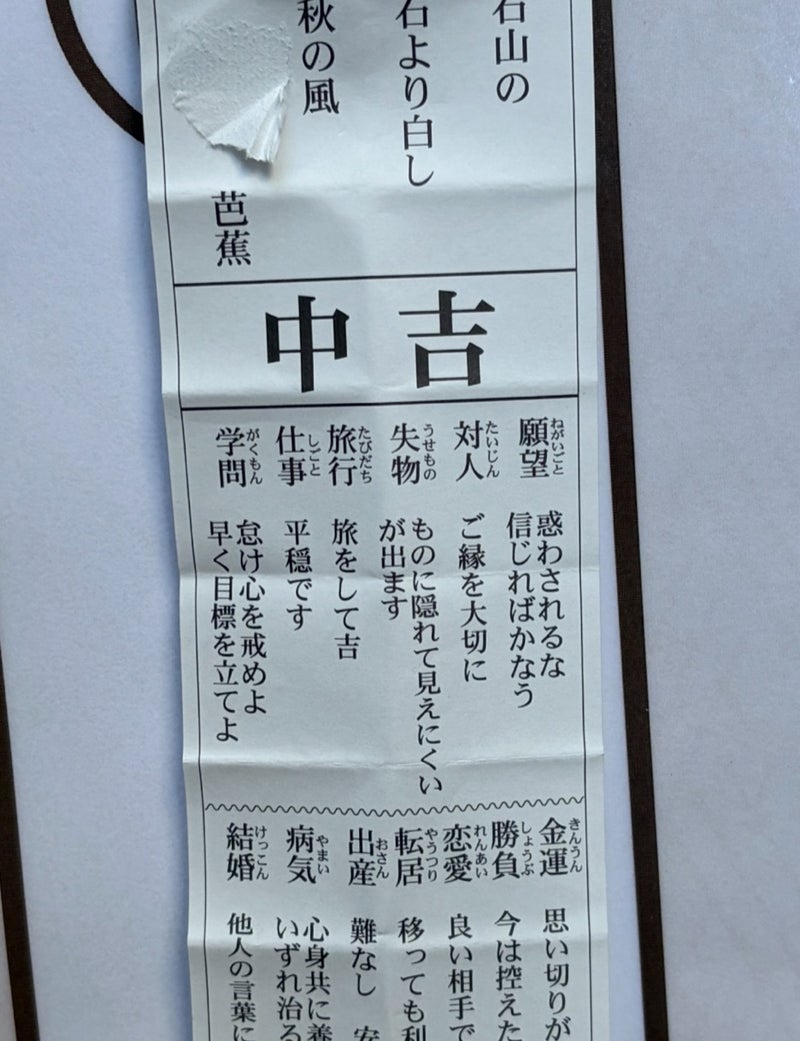 石山の
石より白し
秋の風
芭蕉
中吉
願望 ねがいごと
惑わされるな
信じればかなう
対人 たいじん
ご縁を大切に
失物 うせもの
ものに隠れて見えにくい
が出ます
旅行 たびだち
旅をして吉
仕事 しごと
平穏です
学問 がくもん
怠け心を戒めよ
早く目標を立てよ
金運 きんうん
思い切りが
勝負 しょうぶ
今は控えた
恋愛 れんあい
良い相手で
転居 やうつり
移っても利
出産 おさん
難なし 安
病気 やまい
心身共に養
いずれ治る
結婚 けっこん
他人の言葉に